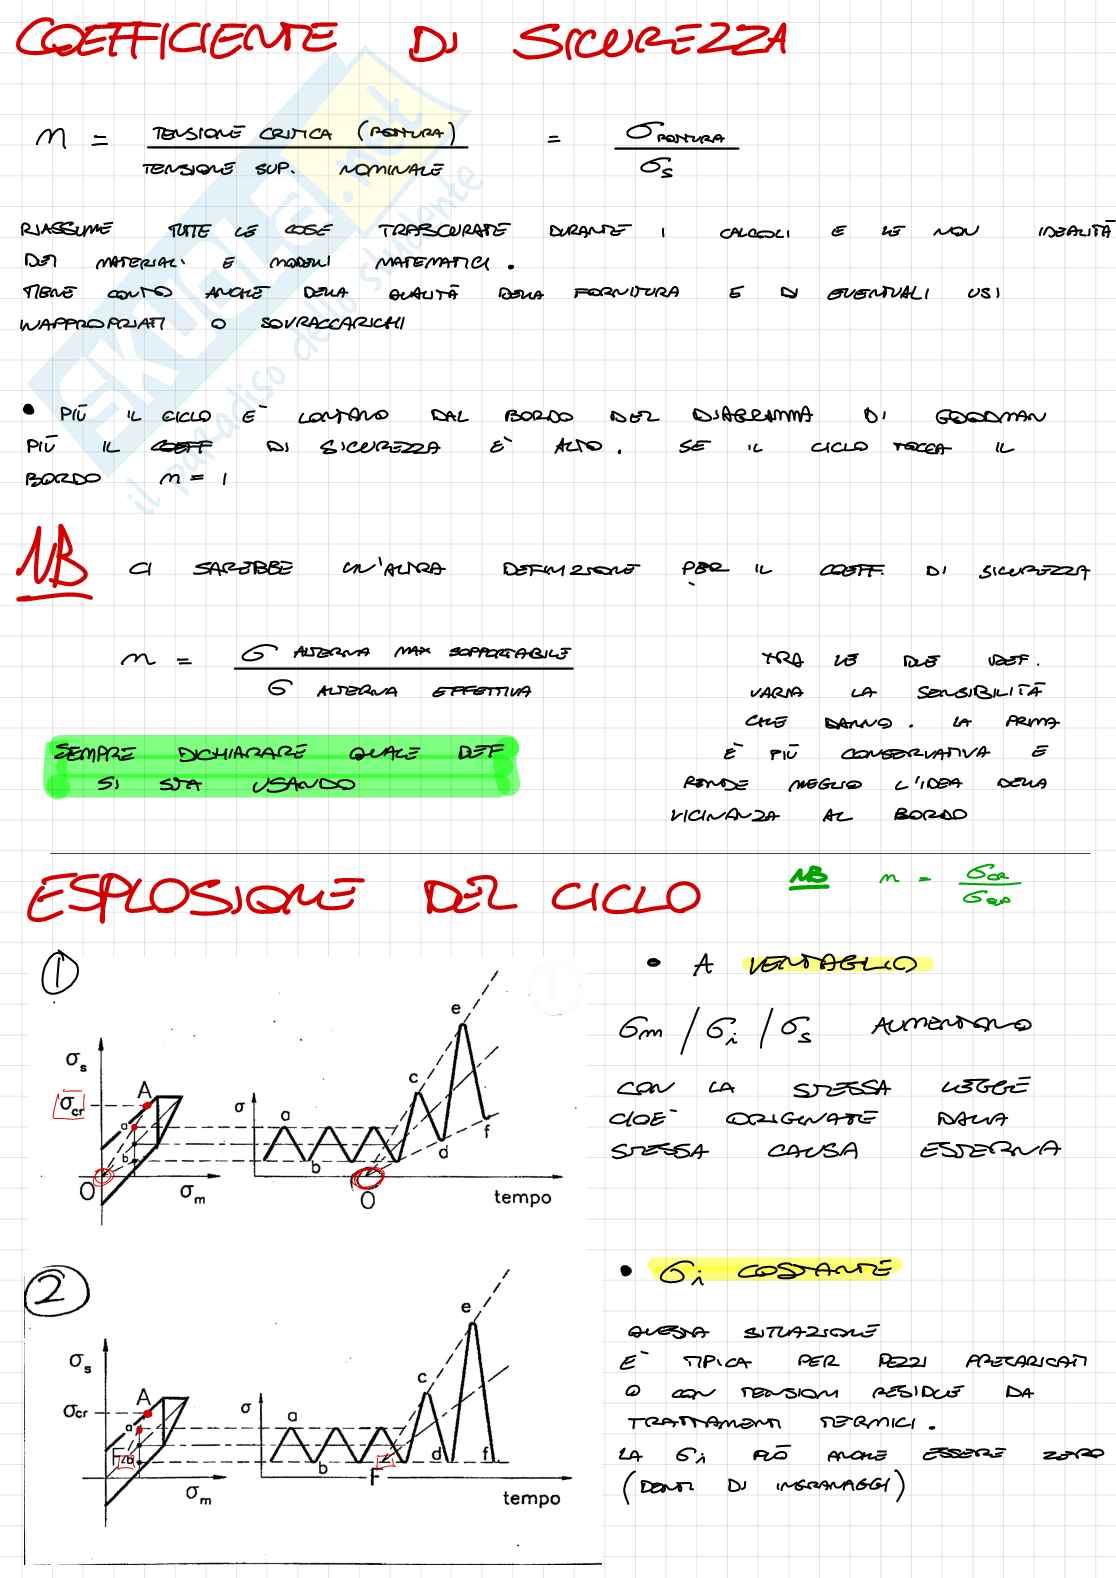 COEFFICIENTE DI SICUREZZA
n = TENSIONE CRITICA (ROTTURA) / TENSIONE SUP. NOMINALE = σ ROTTURA / σs
RIASSUME TUTTE LE COSE TRASCURATE DURANTE I CALCOLI E LE NON IDEALITÀ
DEI MATERIALI E MODELLI MATEMATICI.
TIENE CONTO ANCHE DELLA QUALITÀ DELLA FORNITURA E DI EVENTUALI USI
INAPPROPRIATI O SOVRACCARICHI
• PIÙ IL CICLO È LONTANO DAL BORDO DEL DIAGRAMMA DI GOODMAN
PIÙ IL COEFF DI SICUREZZA È ALTO. SE IL CICLO TOCCA IL
BORDO n = 1
NB CI SAREBBE UN'ALTRA DEFINIZIONE PER IL COEFF. DI SICUREZZA
n = σ ALTERNA MAX SOPPORTABILE / σ ALTERNA EFFETTIVA
TRA LE DUE DEF.
VARIA LA SENSIBILITÀ
CHE DANNO. LA PRIMA
È PIÙ CONSERVATIVA E
RENDE MEGLIO L'IDEA DELLA
VICINANZA AL BORDO
SEMPRE DICHIARARE QUALE DEF
SI STA USANDO
ESPLOSIONE DEL CICLO
NB n = σCR
1
• A VENTAGLIO
σm / σi / σs AUMENTANO
CON LA STESSA LEGGE
CIOÈ ORIGINATE DALLA
STESSA CAUSA ESTERNA
σs
A
σcr
a
b
O
σm
σ
a
b
c
d
e
f
O
tempo
2
• σi COSTANTE
QUESTA SITUAZIONE
È TIPICA PER PEZZI PRECARICATI
O CON TENSIONI RESIDUE DA
TRATTAMENTI TERMICI.
LA σi PUÒ ANCHE ESSERE ZERO
(DENTI DI INGRANAGGI)
σs
A
σcr
a
F
b
σm
σ
a
b
c
d
e
f
F
tempo
SKUOLA.net
il paradiso dello studente